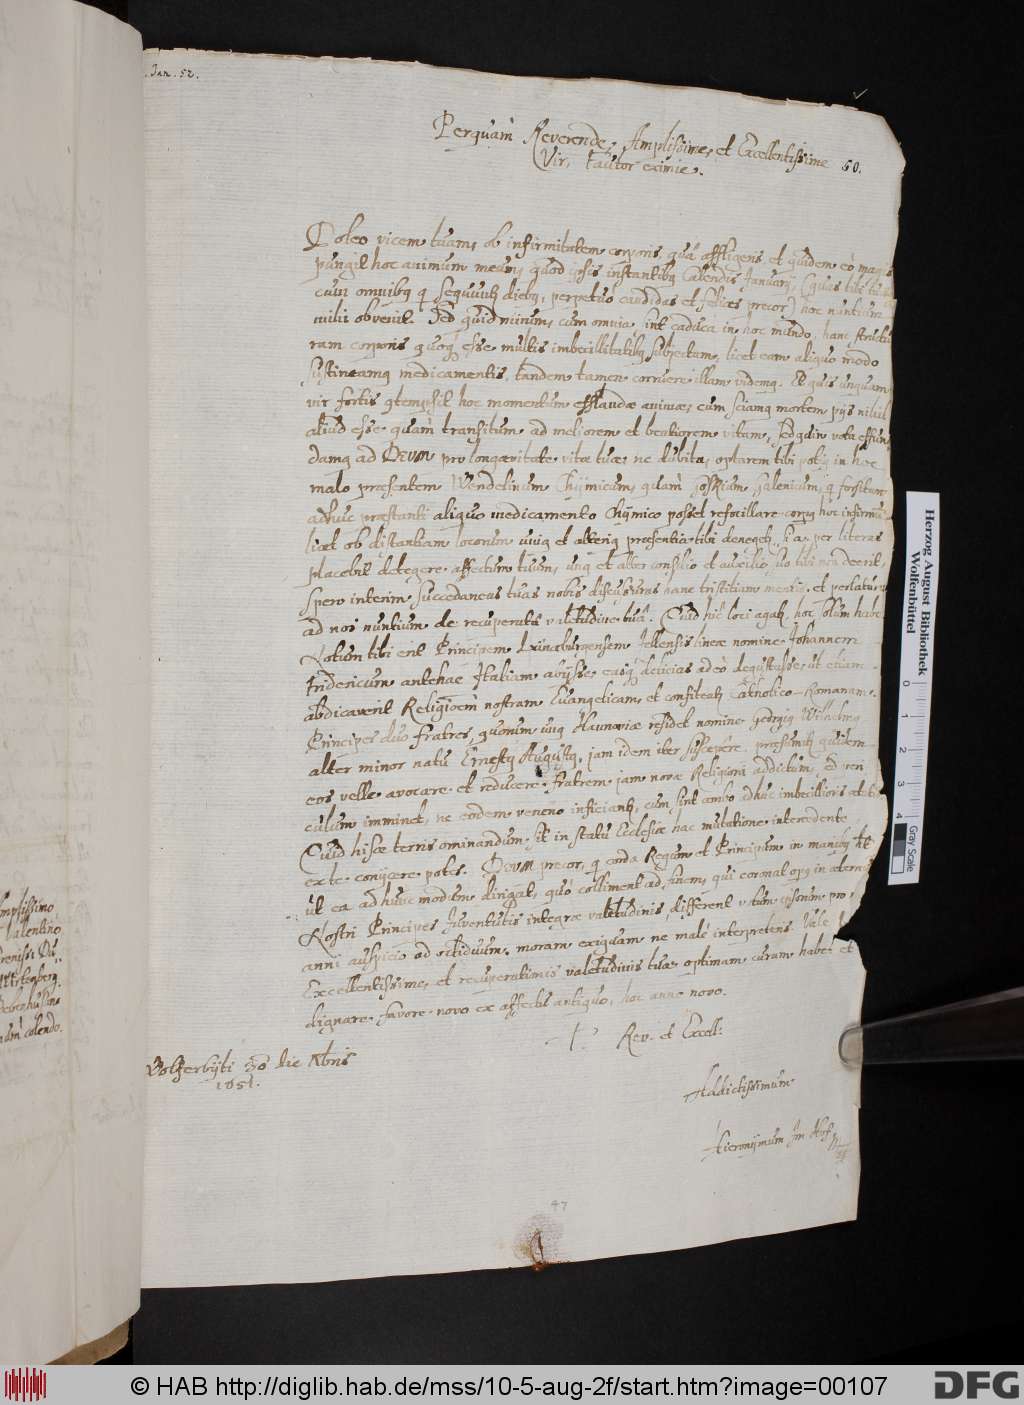 . Jan. 52.
Perquam Reverende, Amplissime, et Excellentissime
50.
Vir, fautor eximie.
Doleo vicem tuam, ob infirmitatem corporis, quâ affligeris et quidem eò magis
pungit hoc animum meum, quod ipsis instantibq Calendis Januarij, (quas tibi
cum omnibq q sequuntr diebq, perpetuo candidas et felices precor) hoc nuntium
mihi obvenit. Sed quid mirum, cum omnia sint caduca in hoc mundo, hanc structu
ram corporis quoq esse multis imbecillitatibq subjectam, licet eam aliquo modo
sustineamq medicamentis, tandem tamen corruere illam videmq. Et quis unquam
vir fortis contempsit hoc momentum efflandæ animæ, cum sciamq mortem pijs nihil
aliud esse quàm transitum ad meliorem et beatiorem vitam, vota effun
damq ad DEUM pro longævitate vitæ tuæ ne dubita, optarem tibi potiq in hoc
malo præsentem Wendelinum Chijmicum, quàm Galenicum, q forsitan
adhuc præstanti aliquo medicamento Chijmico posset refocillare corpq hoc infirmu
licet ob distantiam locorum uniq et alteriq præsentia tibi denegetr, si a per literas
placebit detegere affectum tuum, unq et alter consilio et auxilio suo tibi non deerit,
spero interim succedaneas tuas nobis discussuras hanc tristitiam mentis, et perlaturas
ad nos nuntium de recuperatâ valetudine tuâ. Quid hic loci agatr, hoc solum habe
Notum tibi erit Principem Luneburgensem Zellensis lineæ nomine Johannem
Fridericum antehac Italiam abijsse, easq delicias adeò degustasse ut etiam
abdicaverit Religionem nostram Evangelicam, et confiteatr Catholico-Romanam.
Principes duo fratres, quorum unq Hannoviæ residet nomine Georgiq Wilhelmq
alter minor natu Ernestq Augustq, jam idem iter suscepêre, præsumitr quidem
eos velle avocare et reducere fratrem jam novæ Religioni addictum, sed peri
culum imminet, ne eodem veneno inficiantr, cum sint ambo adhuc imbecillioris ætatis
Quid hisce terris ominandum sit in statu Ecclesiæ hac mutatione intercedente,
ex te conijcere potes. DEUM precor, q corda Regum et Principum in manibq
ut ea ad hunc modum dirigat, quò colliment ad finem, qui coronat opq in æternum
Nostri Principes Juventutis integræ valetudinis, different votum ipsorum pro
anni auspicio ad octiduum. moram exiguam ne malè interpreteris. Vale
Excellentissime, et recuperatimis valetudinis tuæ optimam curam habe et
dignare favore novo ex affectu antiquo, hoc anno novo.
T. Rev. et Excell:
Wolferbijti 30 die Xbris
1651.
Addictissimum
Hieronijmum Im Hof
47
Amplissimo
Valentino
colendo.
Herzog August Bibliothek
Wolfenbüttel
0 1 2 3 4
Gray Scale
© HAB http://diglib.hab.de/mss/10-5-aug-2f/start.htm?image=00107
DFG